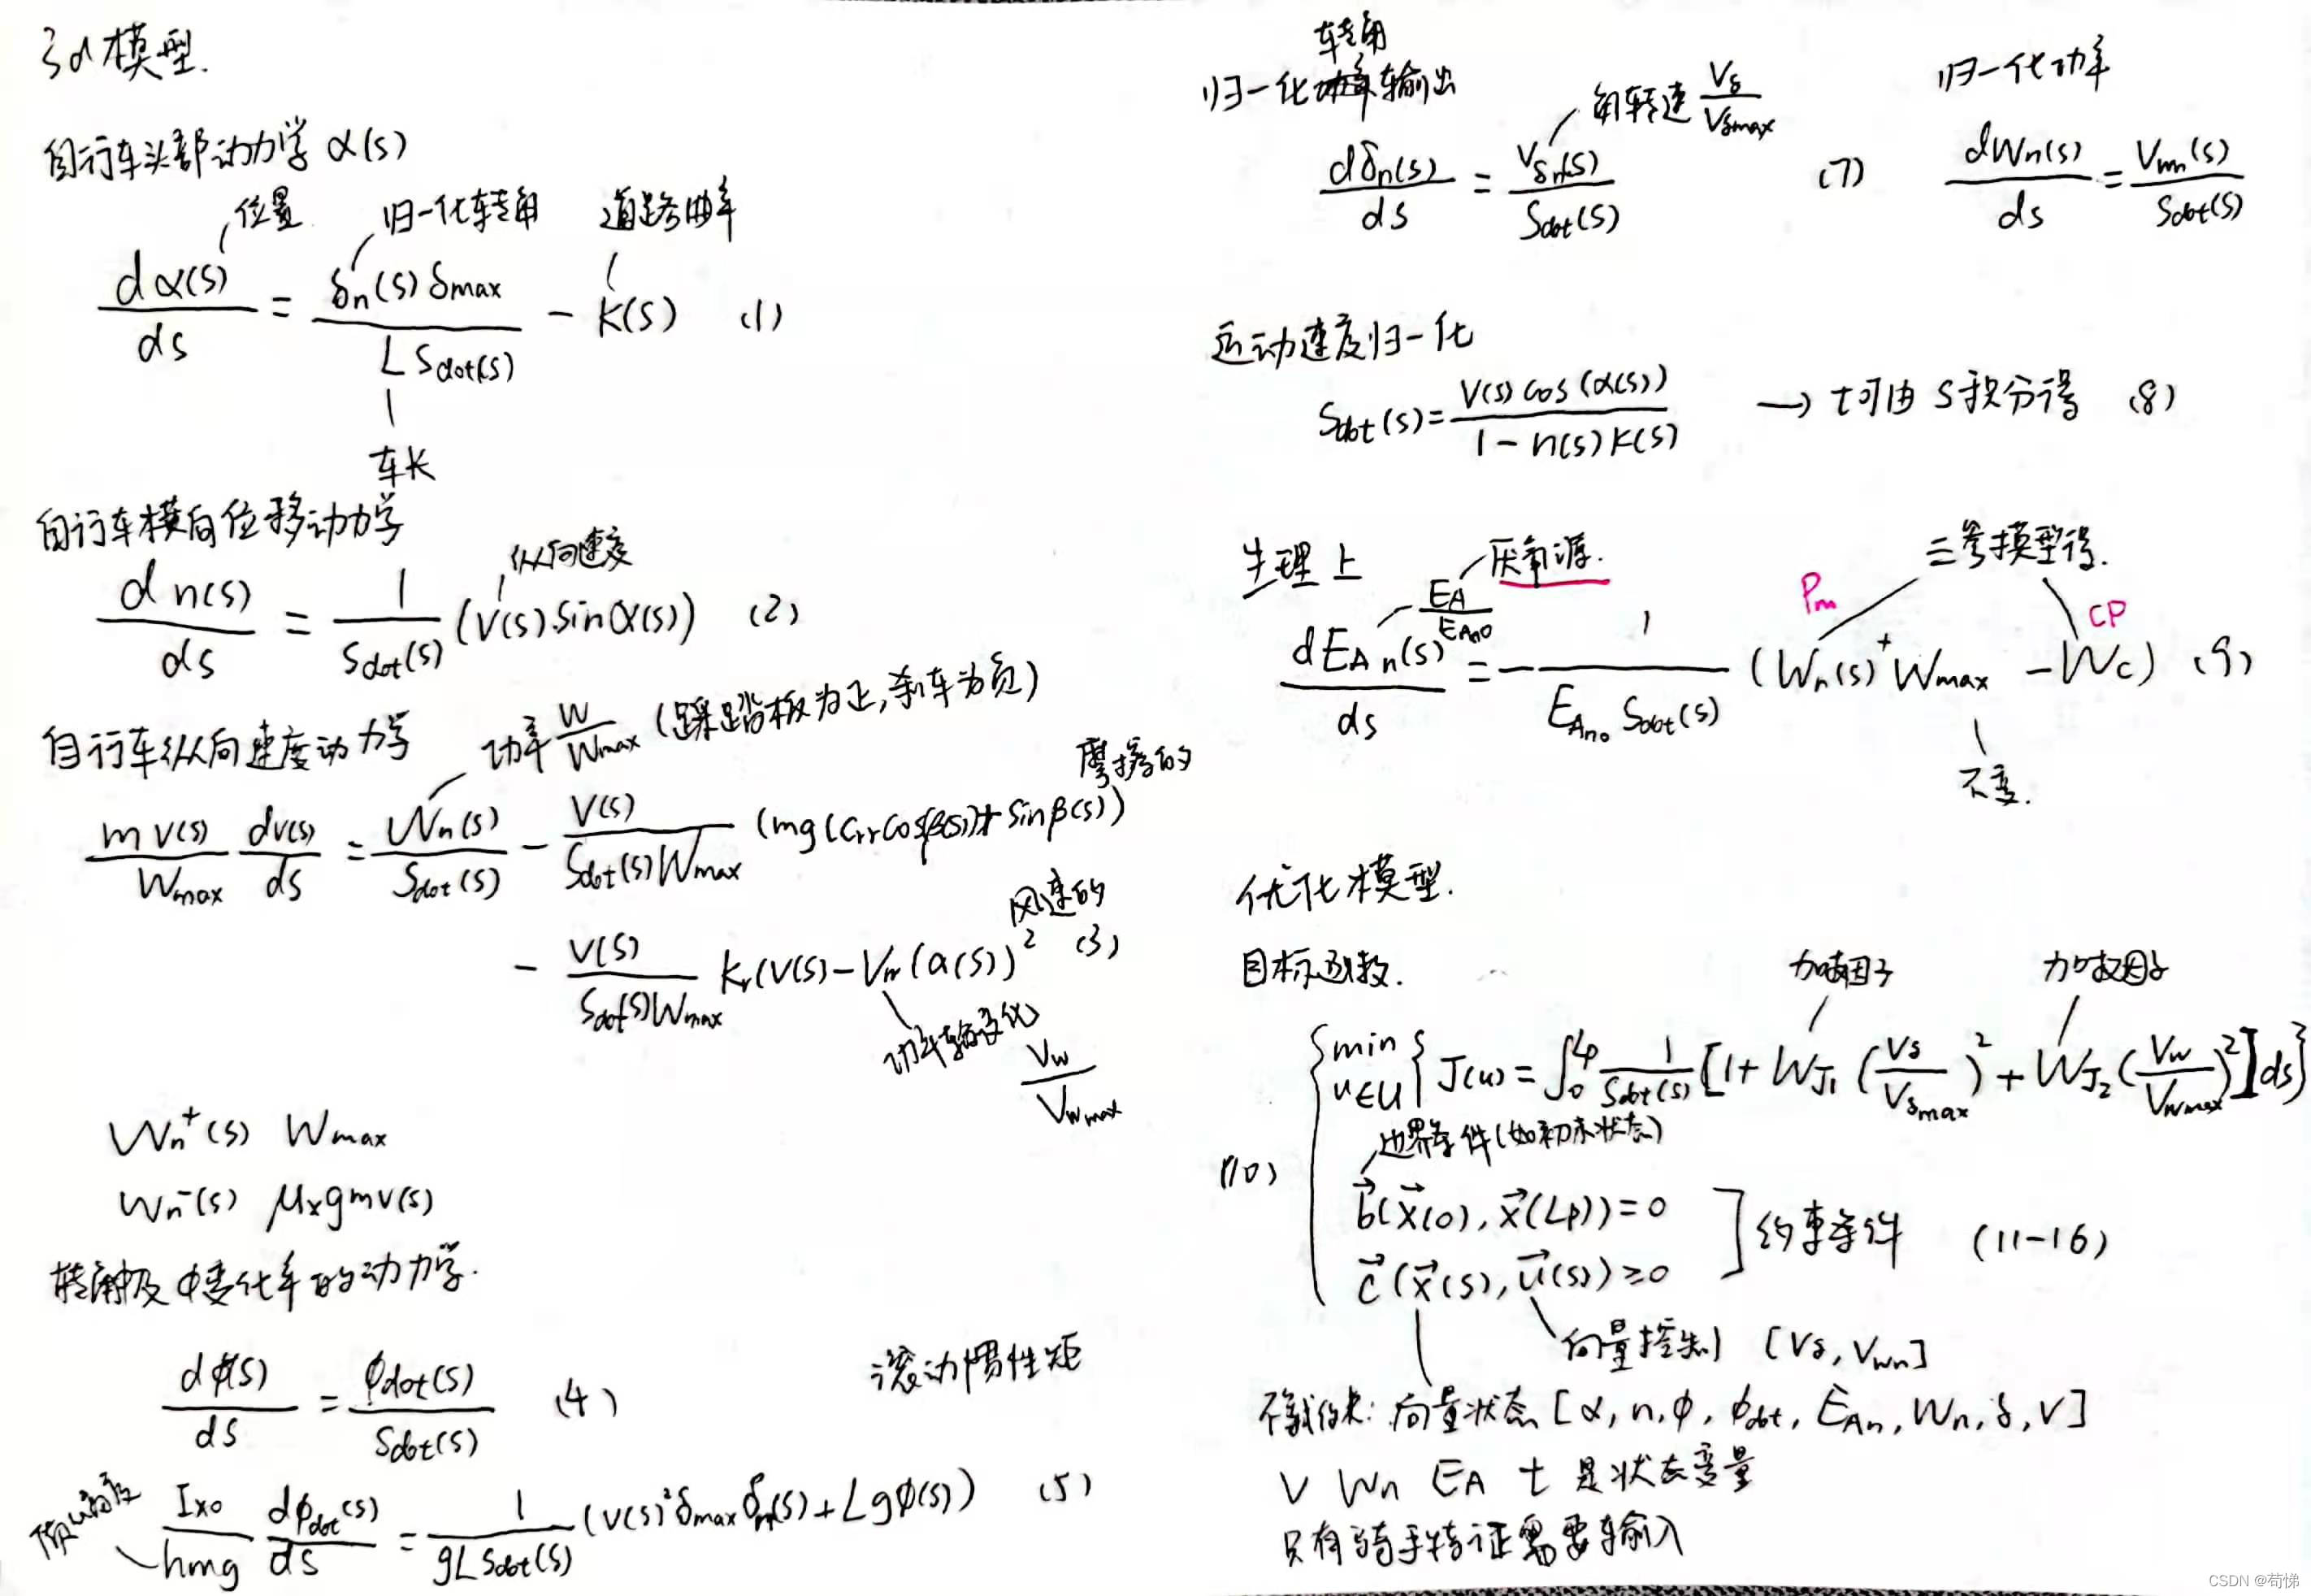 3d模型.
自行车头部动力学 α(s)
位置 归一化转角 道路曲率
dα(s)/ds = δn(s)δmax / L Sdot(s) − K(s) (1)
车长
自行车横向位移动力学
纵向速度
dn(s)/ds = 1/Sdot(s) (V(s).sinα(s)) (2)
自行车纵向速度动力学 功率 W/Wmax (踩踏板为正,刹车为负)
摩擦的
mv(s)/Wmax dv(s)/ds = Wn(s)/Sdot(s) − V(s)/Sdot(s)Wmax (mg(Crrcosβ(s)+sinβ(s))
风速的
− V(s)/Sdot(s)Wmax Kr(V(s)−Vw(a(s))² (3)
Vw/Vwmax
Wn⁺(s) Wmax
Wn⁻(s) μxgmv(s)
变化率的动力学.
dϕ(s)/ds = ϕdot(s)/Sdot(s) (4)
滚动惯性矩
Ixo/hmg dϕdot(s)/ds = 1/gLSdot(s) (V(s)²δmaxδn(s)+Lgϕ(s)) (5)
转角
归一化 输出
角转速 Vδ/Vδmax
dδn(s)/ds = Vδn(s)/Sdot(s) (7)
归一化功率
dWn(s)/ds = Vwn(s)/Sdot(s)
运动速度归一化
Sdot(s) = V(s)cos(α(s)) / 1−n(s)K(s) → t可由S积分得 (8)
生理上 厌氧源. 三参模型得.
EA/EAn0 Pm CP
dEAn(s)/ds = − 1/EAn0 Sdot(s) (Wn(s)⁺Wmax − Wc) (9)
不变.
优化模型.
目标函数.
加权因子 加权因子
{ min u∈U { J(u) = ∫0^Lp 1/Sdot(s) [1+WJ1 (Vδ/Vδmax)² + WJ2 (Vw/Vwmax)²]ds}
边界条件(如初末状态)
(10) b⃗(x⃗(0), x⃗(Lp))=0
c⃗(x⃗(s), u⃗(s))≥0
约束条件 (11−16)
向量控制 [Vδ, Vwn]
向量状态 [α, n, ϕ, ϕdot, EAn, Wn, δ, V]
V Wn EA t 是状态变量
只有骑手特证需要输入
CSDN @苟悌